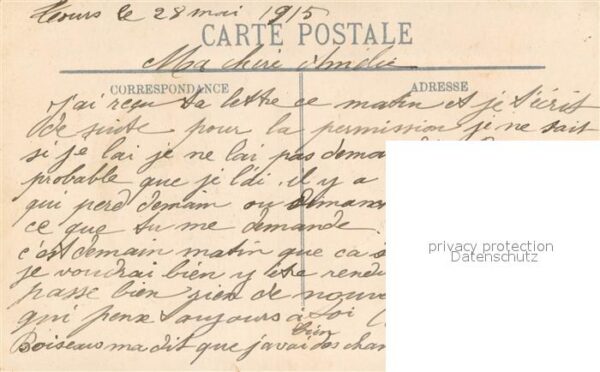 Tours le 28 mai 1915
CARTE POSTALE
Ma chère Amélie
CORRESPONDANCE
ADRESSE
J'ai reçu ta lettre ce matin et je t'écrit
de suite pour la permission je ne sait
si je lai je ne lai pas dema
probable que je l'ai. il y a
qui perd demain ou diman
ce que tu me demande
c'est demain matin que ca s
je voudrai bien y etre rendu
passe bien rien de nouve
qui pense toujours à toi
bien
Boiseau ma dit que j'avai des chan
privacy protection
Datenschutz